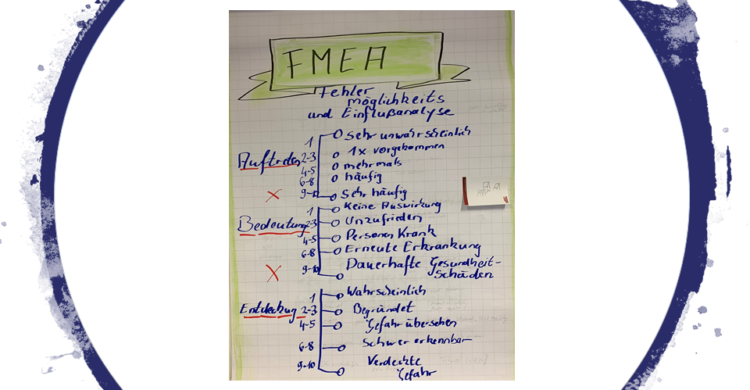 FMEA
Fehler
möglichkeits
und Einflußanalyse
Auftreten
1 Sehr unwahrscheinlich
2-3 1x vorgekommen
4-5 mehrmals
6-8 häufig
9-10 Sehr häufig
X
Bedeutung
1 Keine Auswirkung
2-3 Unzufrieden
4-5 Personen Krank
6-8 Erneute Erkrankung
9-10 Dauerhafte Gesundheit-
schäden
X
Entdeckung
1 Wahrscheinlich
2-3 Begründet
4-5 Gefahr übersehen
6-8 Schwer erkennbar
9-10 Verdeckte
Gefahr